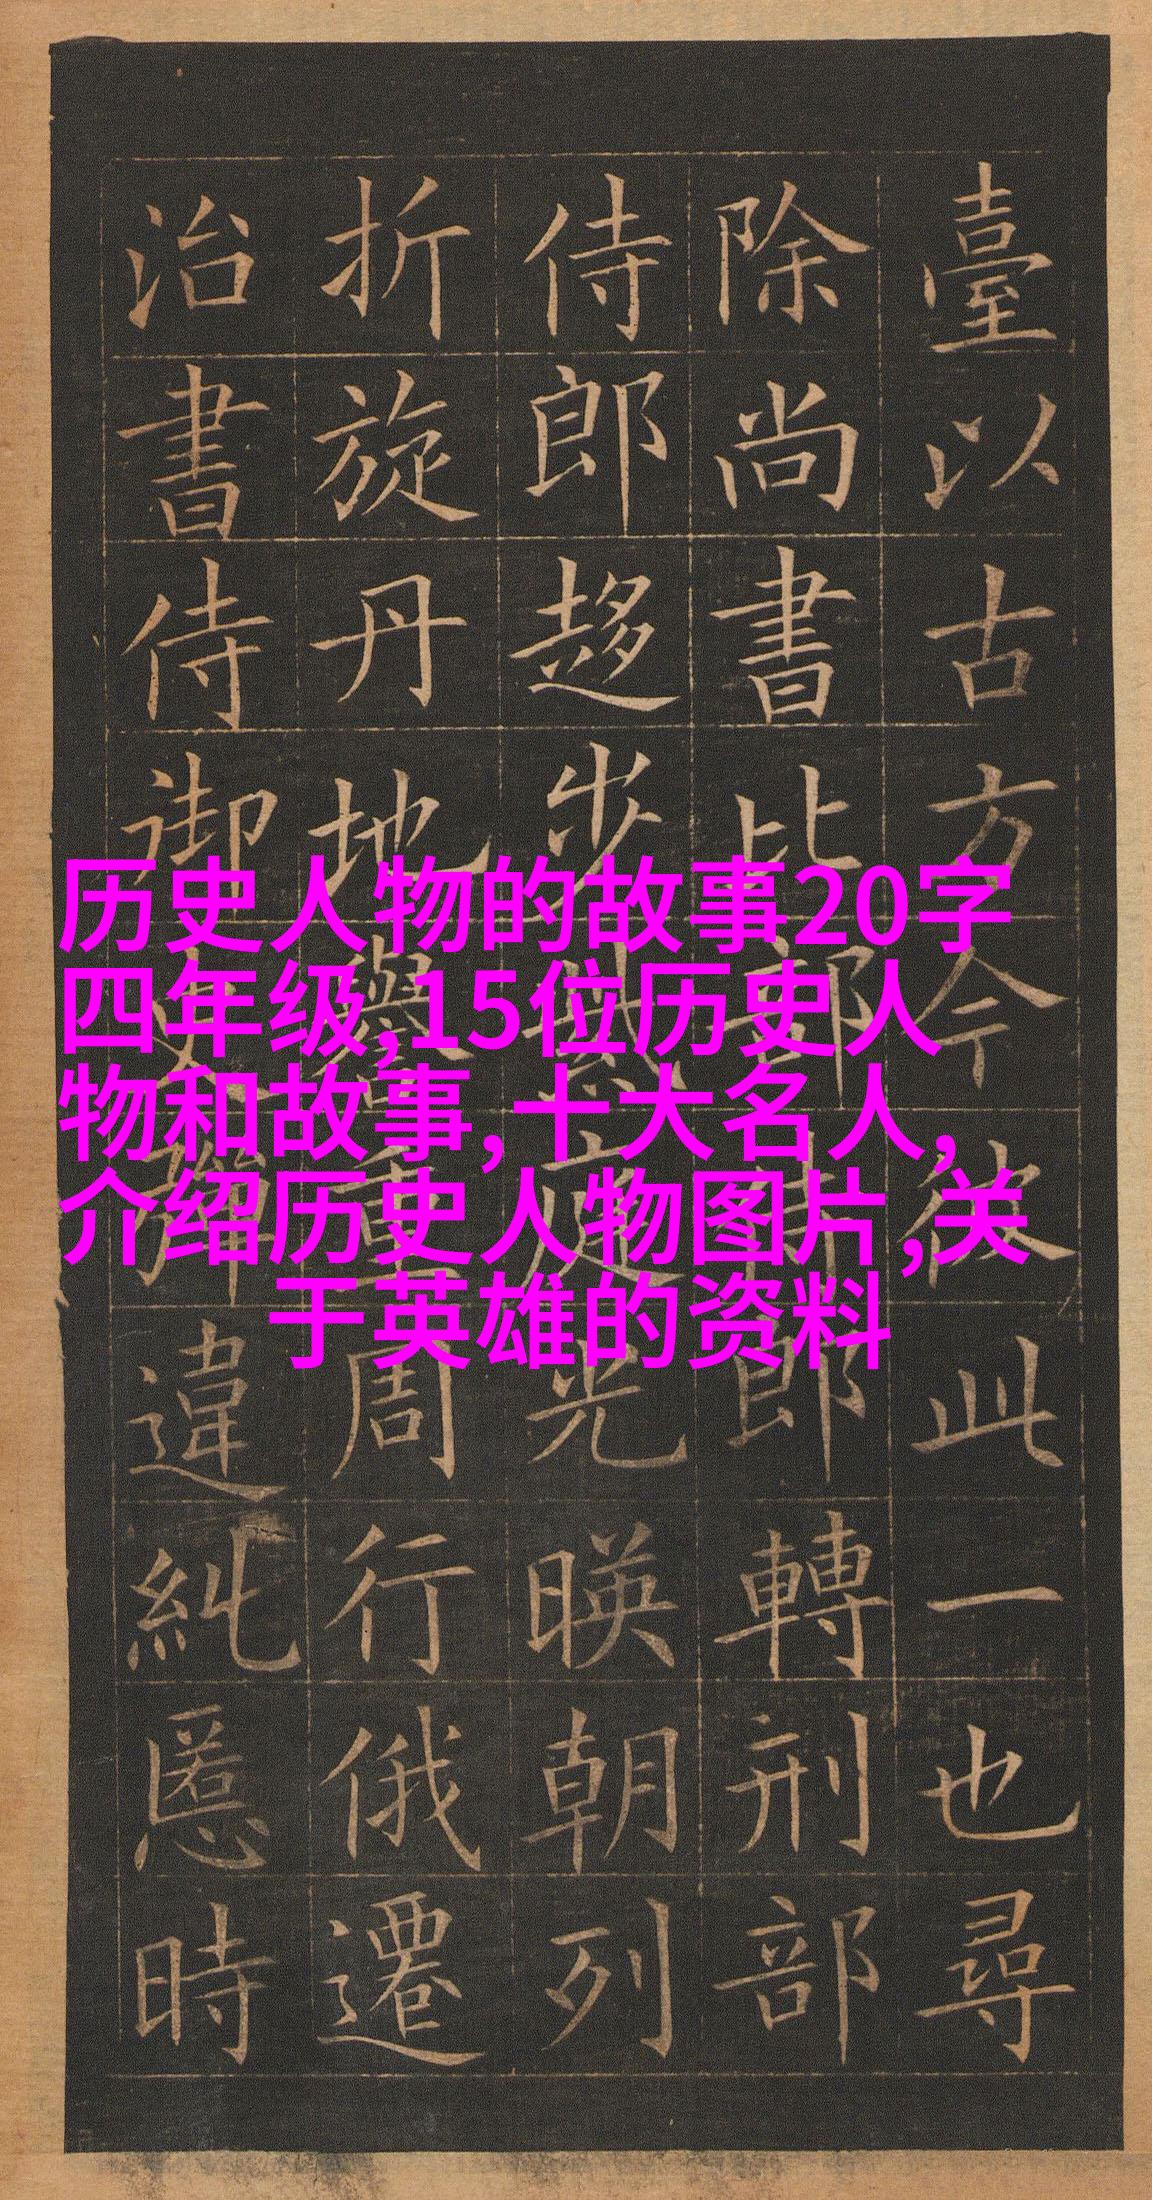 臺以古方今彼此一也尋
除尚書比部侍郎轉刑部
侍郎趍步紫庭光暎朝列
折旋丹地譽重周行俄遷
治書侍御史彈違糺慝時
历史人物的故事20字
四年级,15位历史人
物和故事,十大名人,
介绍历史人物图片,关
于英雄的资料